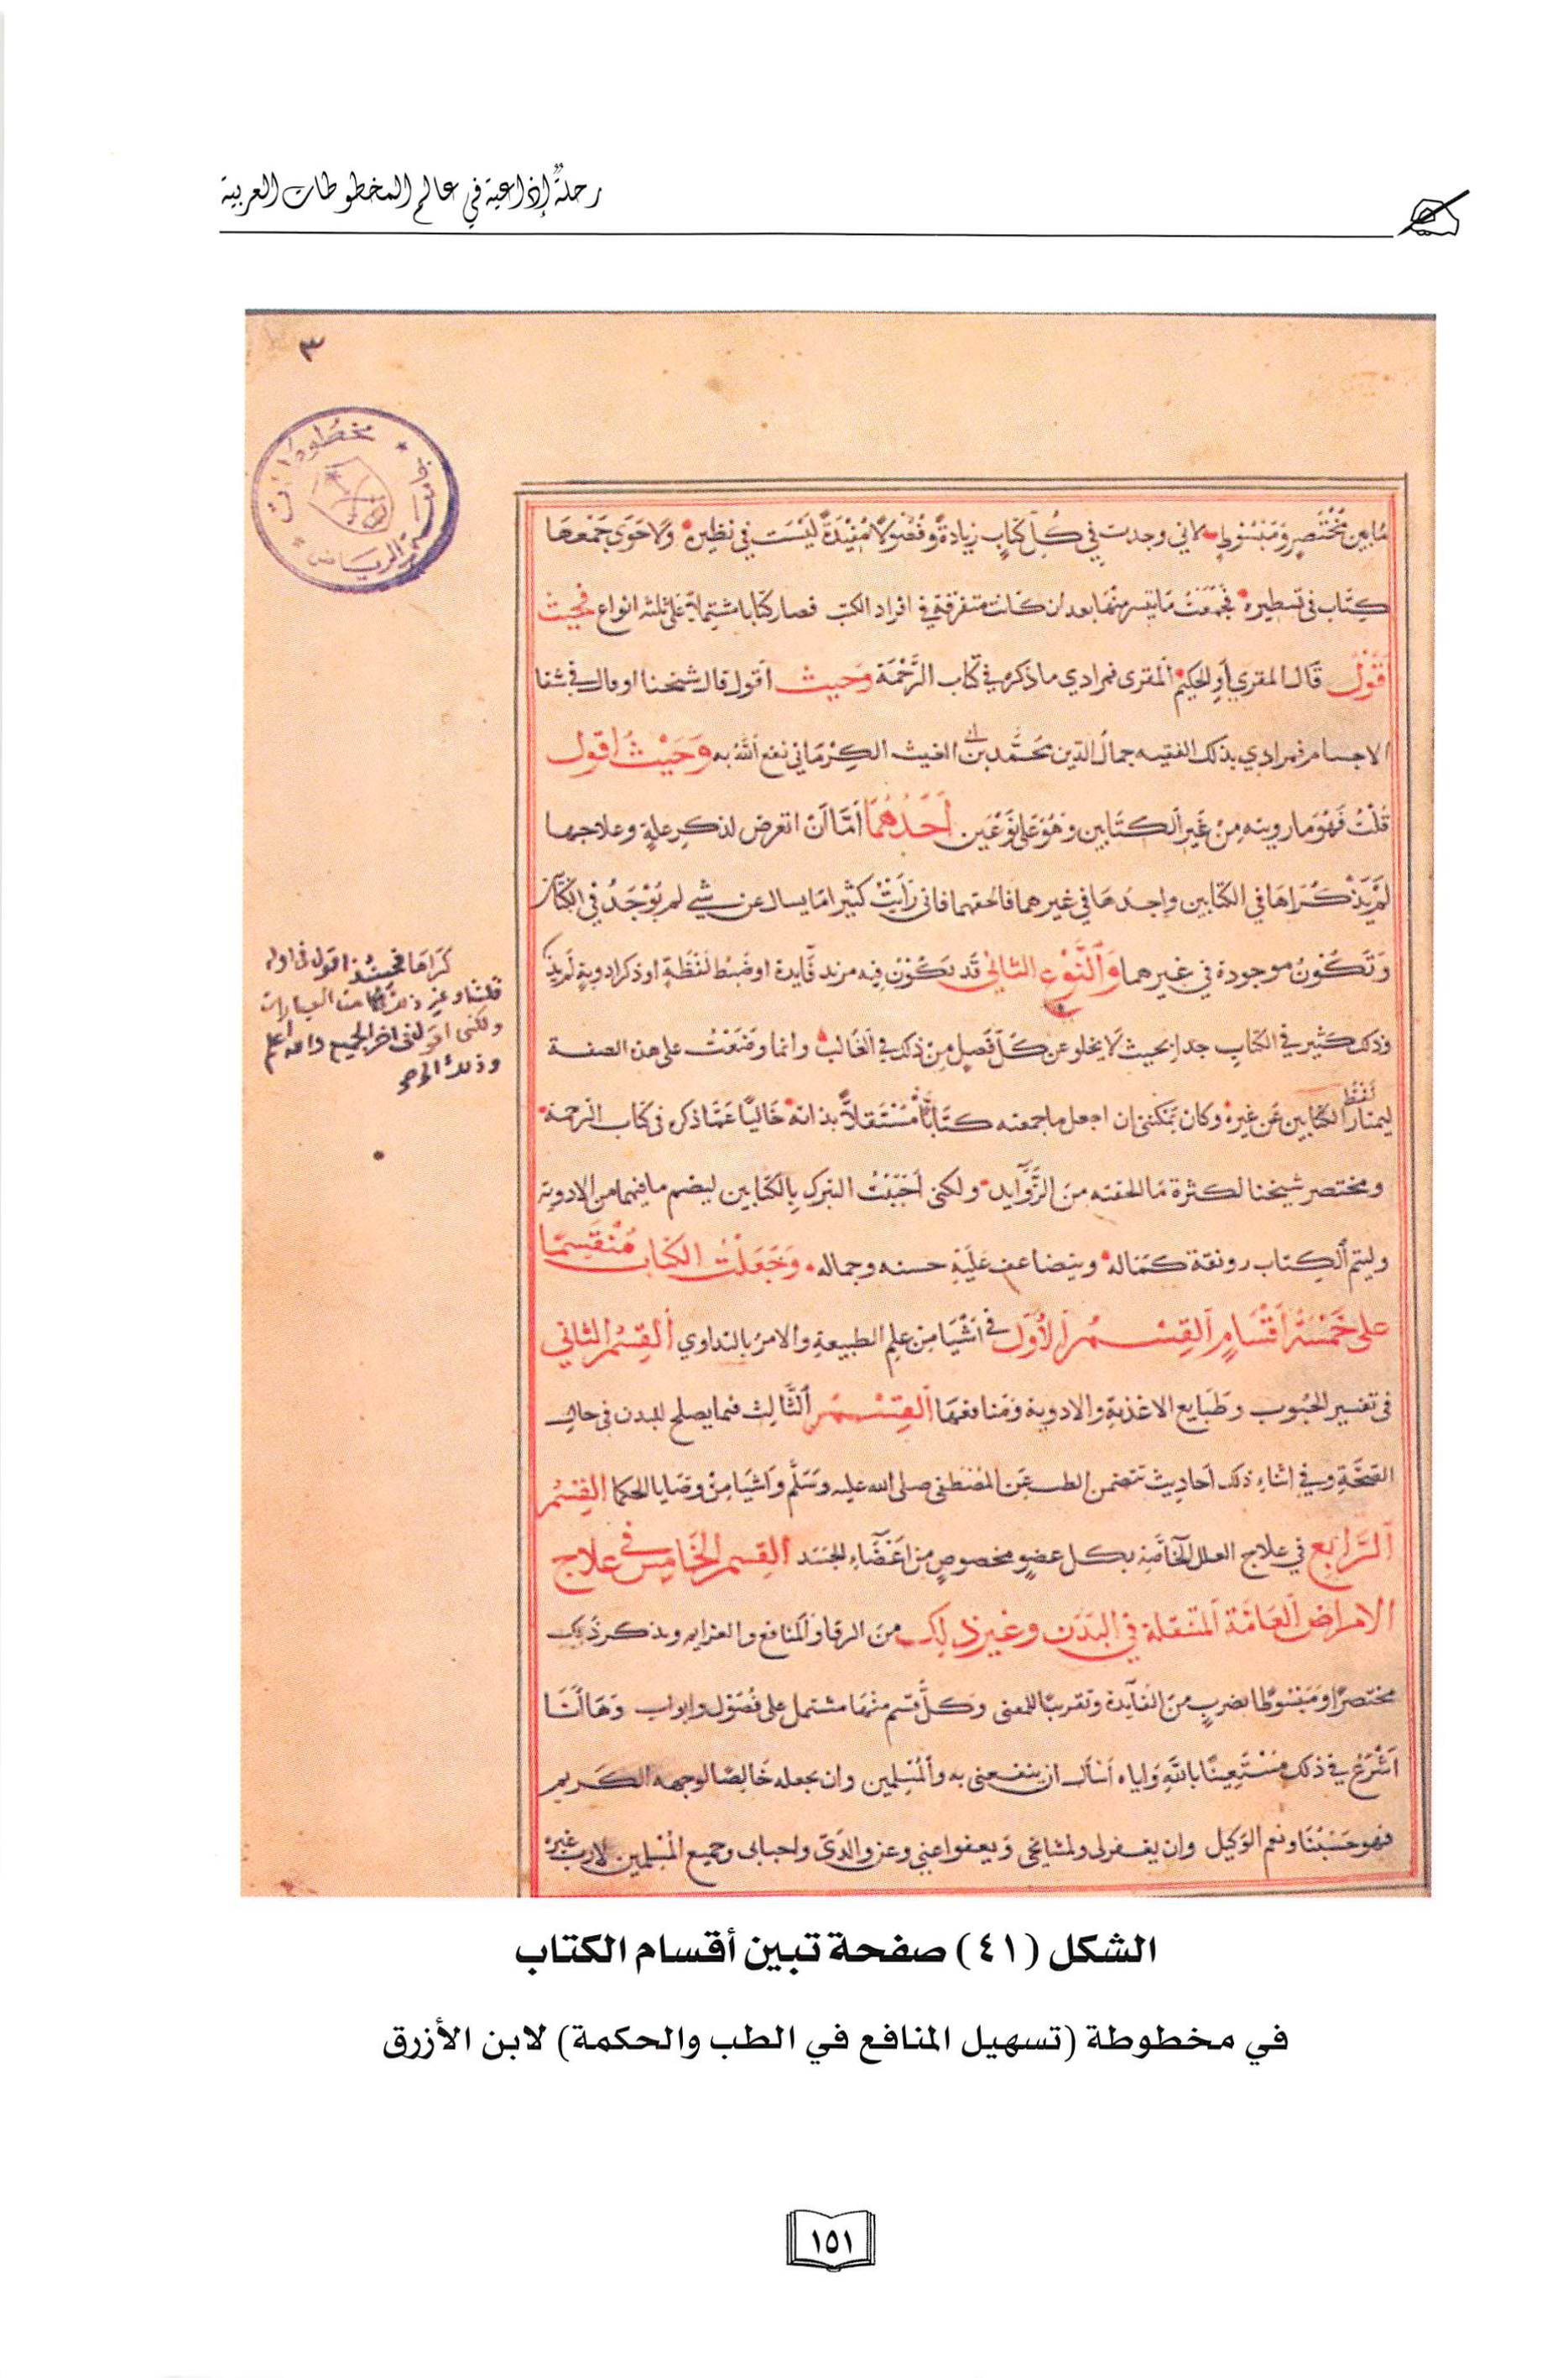 رحلةٌ إذاعية في عالم المخطوطات العربية
٣
مخطوطات
جامعة الرياض
مابين مختصر ومبسوط لاني وجدت في كل كتاب زيادة وفضولا مفيدة ليست في نظيره ولا حوى جمعها
كتاب في تسطيره فجمعت ما تيسر منها بعد ان كانت متفرقة في افراد الكتب فصار كتابا مشتملا على ثلثه انواع فحيث
أقول قال المقري أو الحكيم المقري فمرادي ما ذكره في كتاب الرحمة وحيث أقول قال شيخنا او قال في شفا
الاجسام فمرادي بذلك الفقيه جمال الدين محمد بن ابي الغيث الكرماني نفع الله به وحيث اقول
قلت فهو ما رويته من غير الكتابين وهو على نوعين أحدهما أما ان اتعرض لذكر علة وعلاجها
لم يذكراها في الكتابين واجدها في غيرهما فالحقهما فاني رأيت كثيرا ما يسال عن شي لم يوجد في الكتابين
وتكون موجودة في غيرهما والنوع الثاني قد يكون فيه مزيد فايدة او ضبط لفظة او ذكر ادوية لم يذ
كراها فحينئذ اقول في اوله
قلت او غير ذلك من العبارات
ولكني اقول في اخر الجميع والله اعلم
وذلك
وذلك كثير في الكتاب جدا بحيث لا يخلو عن كل فصل من ذلك في الغالب وانما وضعت على هذه الصفة
ليمتاز لفظ الكتابين عن غيره وكان يمكنني ان اجعل ما جمعته كتابا مستقلا بذاته خاليا عما ذكر في كتاب الرحمة
ومختصر شيخنا لكثرة ما الحقته من الزوايد ولكني احببت التبرك بالكتابين ليضم ما فيهما من الادوية
وليتم الكتاب رونقة كماله ويتضاعف عليه حسنه وجماله وجعلت الكتاب منقسما
على خمسة أقسام القسم الأول في أشيا من علم الطبيعة والامر بالتداوي القسم الثاني
في تفسير الحبوب وطبايع الاغذية والادوية ومنافعها القسم الثالث فيما يصلح للبدن في حال
الصحة وفي اثناء ذلك أحاديث تتضمن الطب عن المصطفى صلى الله عليه وسلم وأشيا من وصايا الحكما القسم
الرابع في علاج العلل الخاصة بكل عضو مخصوص من أعضاء الجسد القسم الخامس في علاج
الامراض العامة المتنقلة في البدن وغير ذلك من الرقا والمنافع والعزايم ويذكر ذلك
مختصرا ومبسوطا بضرب من الفايدة وتقريبا للمعنى وكل قسم منها مشتمل على فصول وابواب وها أنا
أشرع في ذلك مستعينا بالله واياه أسأل ان ينفعني به والمسلمين وان يجعله خالصا لوجهه الكريم
فهو حسبنا ونعم الوكيل وان يغفر لي ولمشايخي ويعفوا عني وعن والدي واحبابي وجميع المسلمين لا رب غيره
الشكل (٤١) صفحة تبين أقسام الكتاب
في مخطوطة (تسهيل المنافع في الطب والحكمة) لابن الأزرق
١٥١